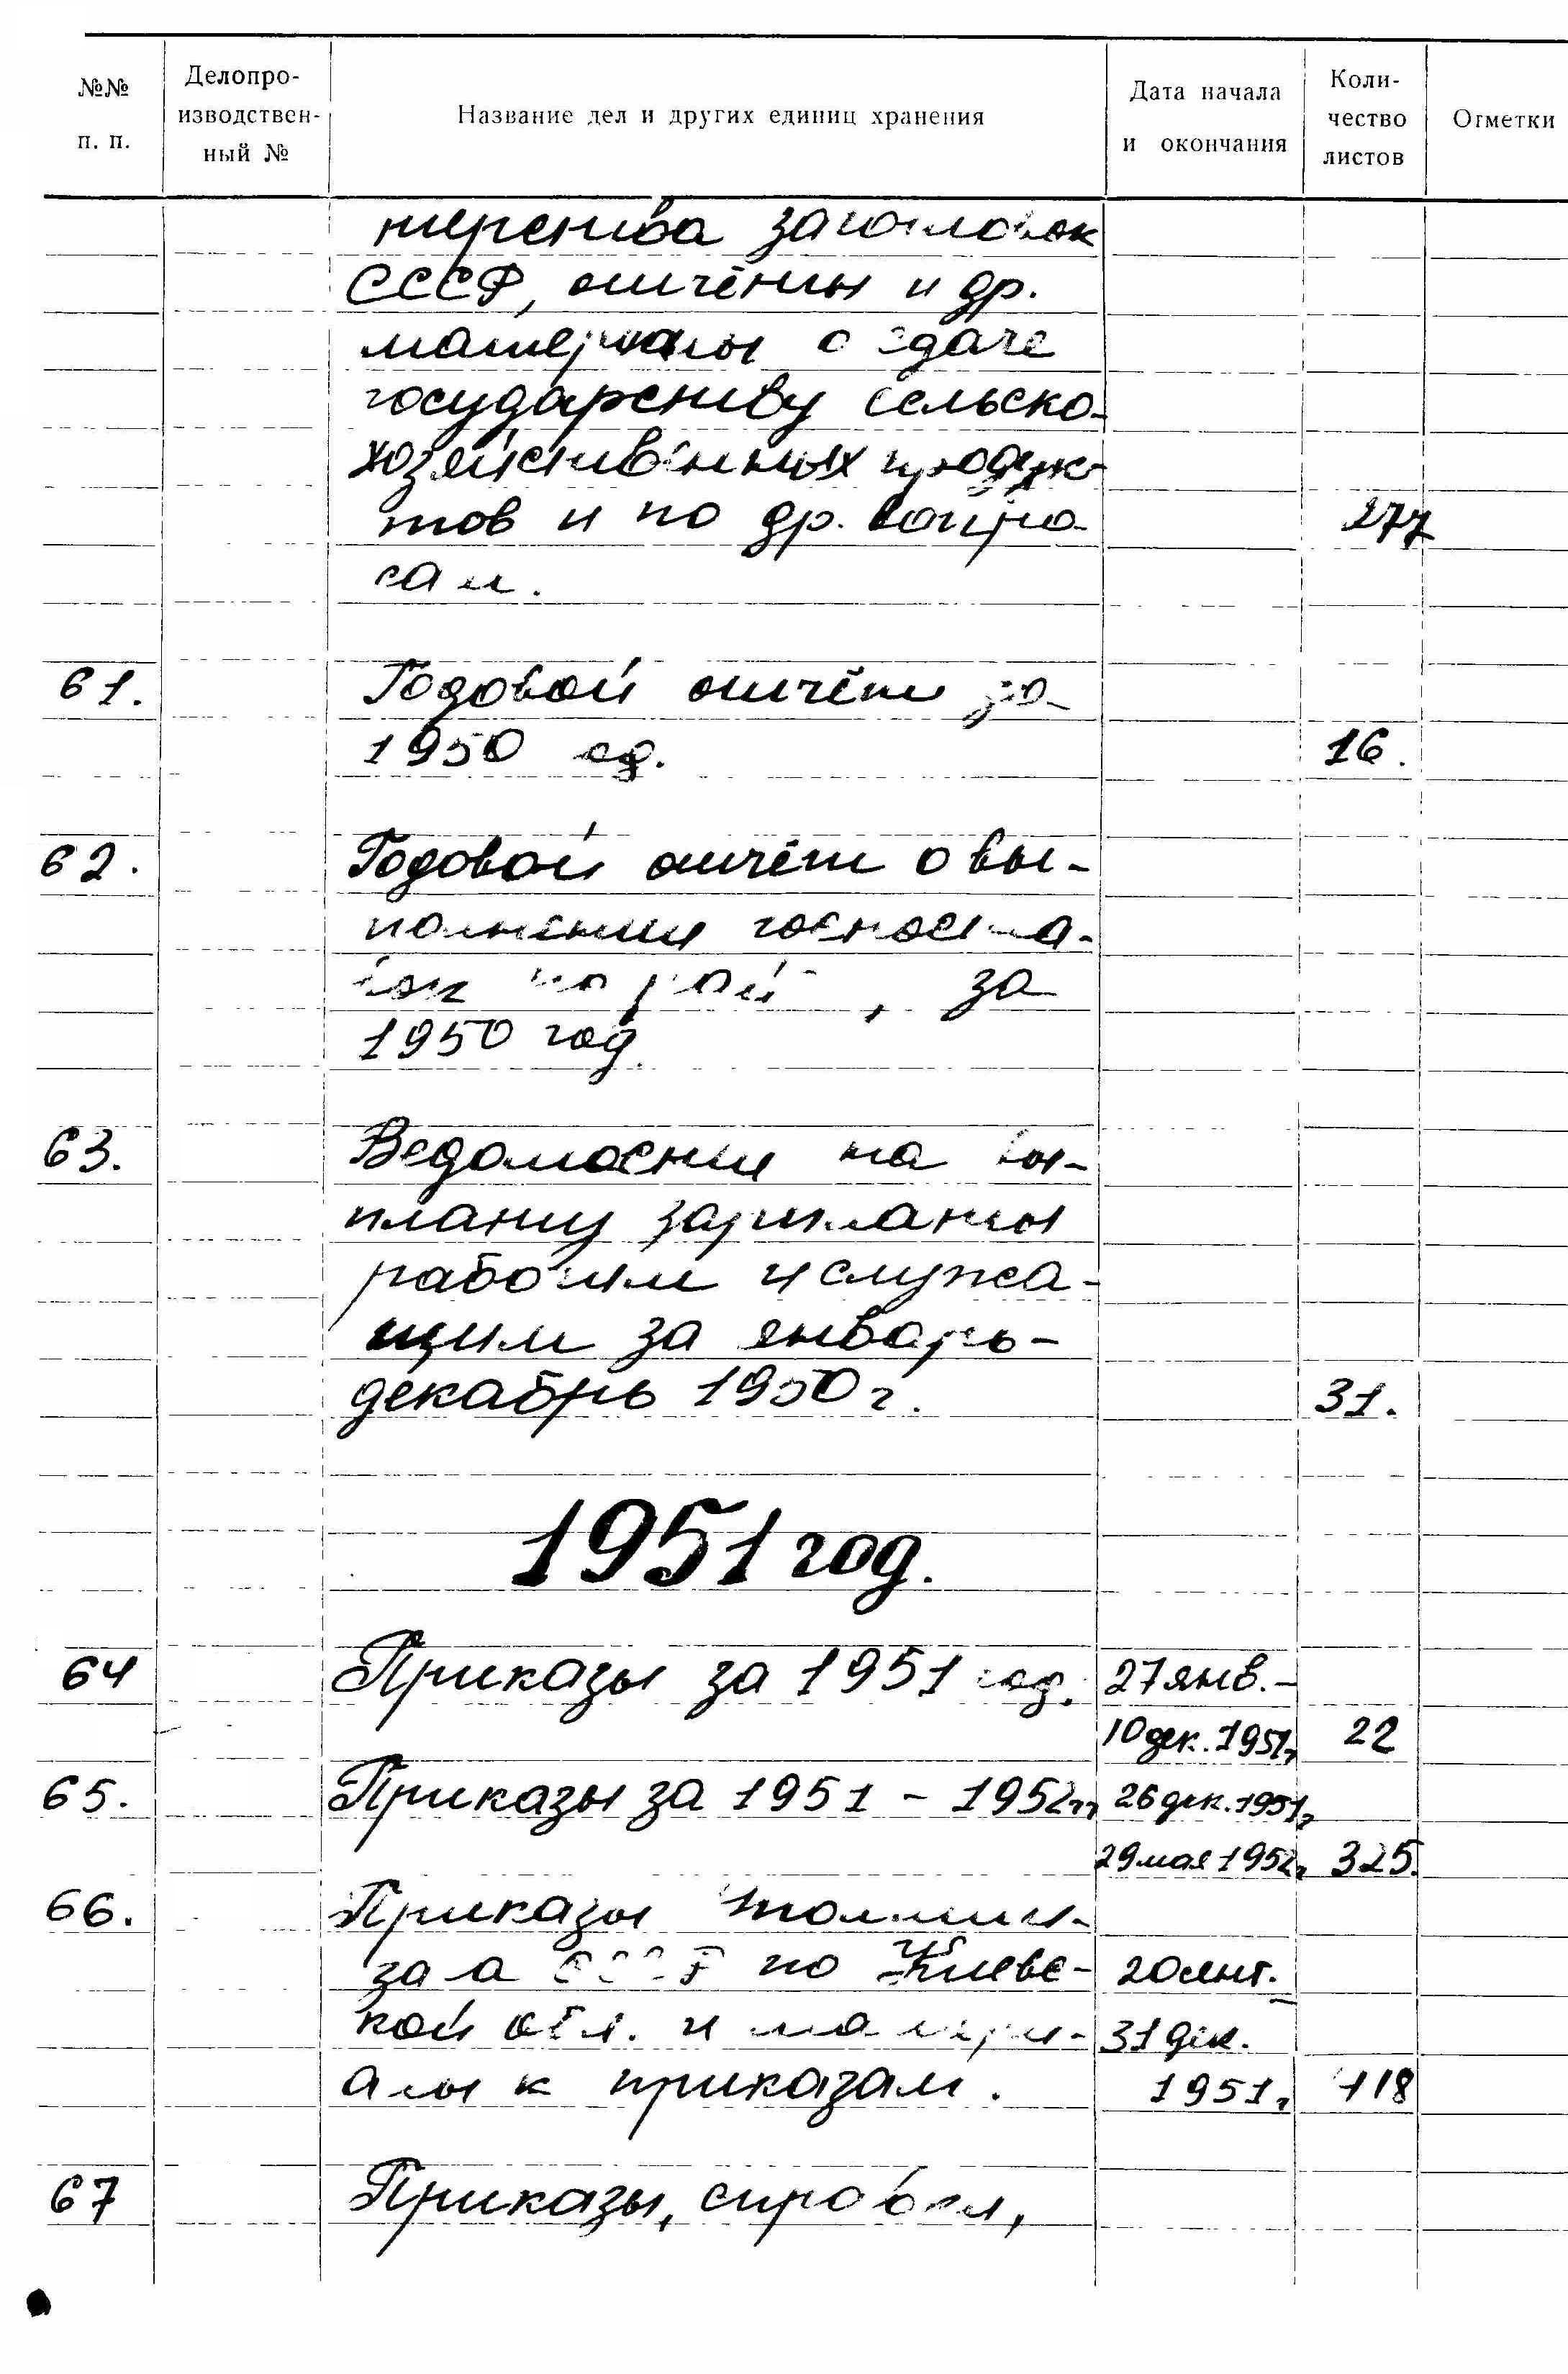 №№ п. п.
Делопро-
изводствен-
ный №
Название дел и других единиц хранения
Дата начала
и окончания
Коли-
чество
листов
Отметки
терства заготовок
СССР, отчёты и др.
материалы о сдаче
государству сельско-
хозяйственных продук-
тов и по др. вопро- 277
сам.
61. Годовой отчёт за
1950 год. 16.
62. Годовой отчёт о вы-
полнении госпоста-
вок по за
1950 год.
63. Ведомости на вы-
плату зарплаты
рабочим и служа-
щим за январь-
декабрь 1950 г. 31.
1951 год.
64 Приказы за 1951 год. 27 янв. -
10 дек. 1951г 22
65. Приказы за 1951 - 1952гг 26 дек. 1951г
29 мая 1952г 325.
66. Приказы
СССР по Киевс- 2 сент. -
кой обл. и матери- 31 дек.
алы к приказам. 1951г 118
67 Приказы, справки,